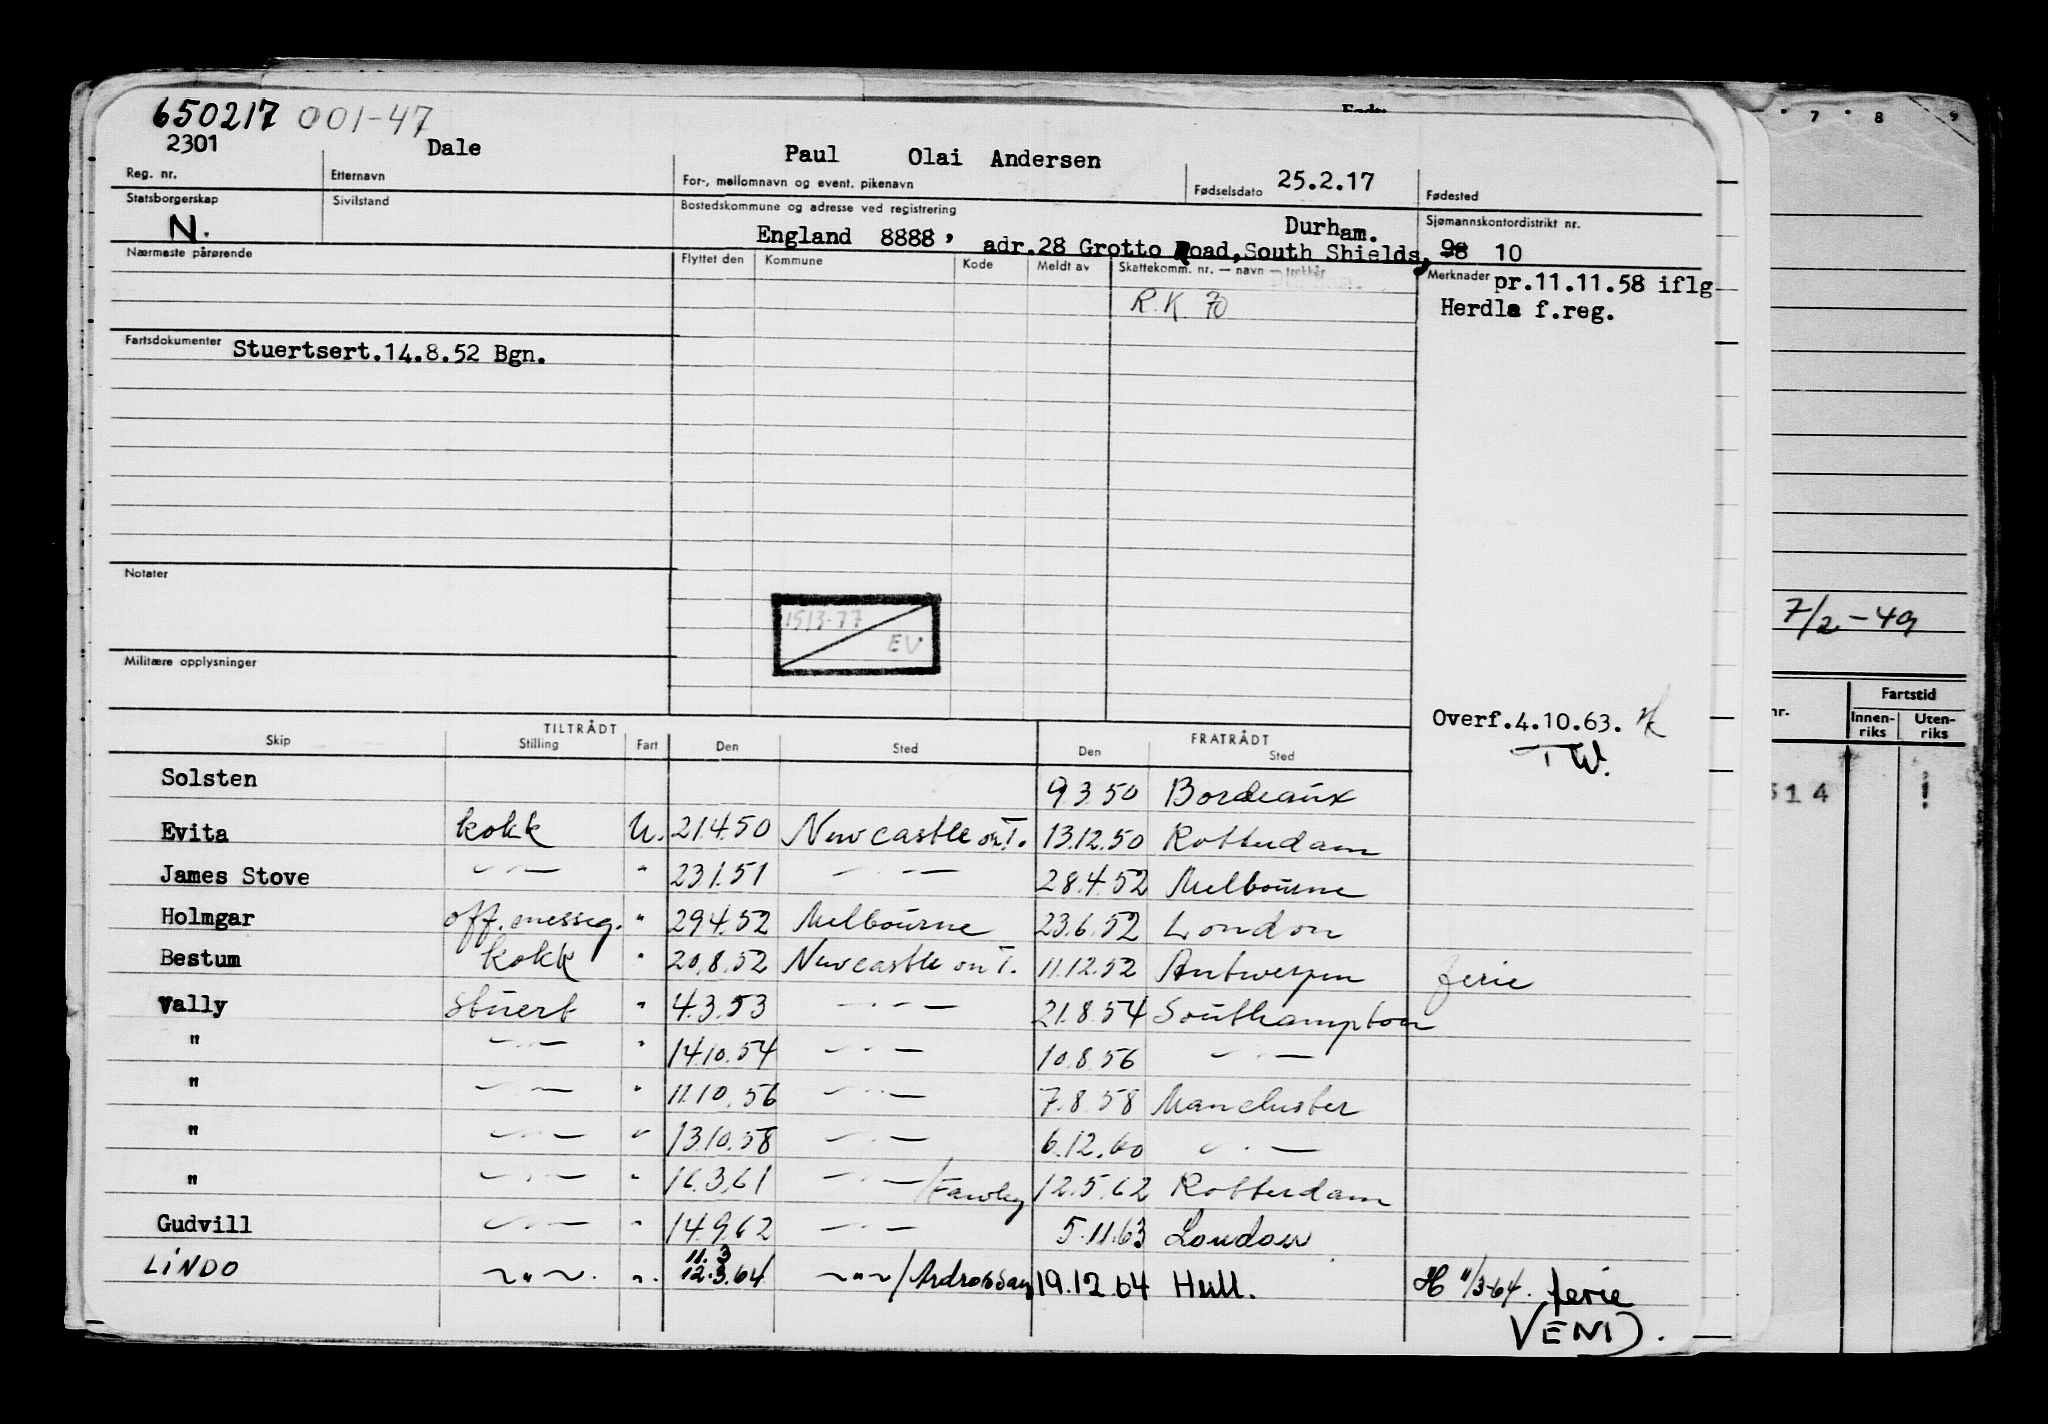 650217 001-47
2301 Dale Paul Olai Andersen 25.2.17
Reg. nr. Etternavn For-, mellomnavn og event. pikenavn Fødselsdato Fødested
Statsborgerskap Sivilstand Bostedskommune og adresse ved registrering Sjømannskontordistrikt nr.
N. England 8888, adr.28 Grotto Road,South Shields, Durham. 98 10
Nærmeste pårørende Flyttet den Kommune Kode Meldt av Skattekomm. nr. — navn — trekkår Merknader pr.11.11.58 iflg
R.K. 70 Herdla f.reg.
Fartsdokumenter Stuertsert.14.8.52 Bgn.
Notater
1513-77
EV
7/2-49
Militære opplysninger
Overf.4.10.63.
TW.
TILTRÅDT FRATRÅDT
Skip Stilling Fart Den Sted Den Sted
Solsten 9.3.50 Bordeaux
Evita kokk U. 21.4.50 Newcastle on T. 13.12.50 Rotterdam
James Stove — " — " 23.1.51 — " — 28.4.52 Melbourne
Holmgar off.messeg. " 29.4.52 Melbourne 23.6.52 London
Bestum kokk " 20.8.52 Newcastle on T. 11.12.52 Antwerpen ferie
Vally stuert " 4.3.53 — " — 21.8.54 Southampton
" — " — " 14.10.54 — " — 10.8.56 — " —
" — " — " 11.10.56 — " — 7.8.58 Manchester
" — " — " 13.10.58 — " — 6.12.60 — " —
" — " — " 16.3.61 — " — /Fawley 12.5.62 Rotterdam
Gudvill — " — " 14.9.62 — " — 5.11.63 London
11.3
LINDO ~ " ~. ". 12.3.64 ~ " ~ /Ardrossan 19.12.64 Hull. H 11/3-64. ferie
VEND.
7 8 9
nr. Fartstid
Innen-riks Uten-riks
514